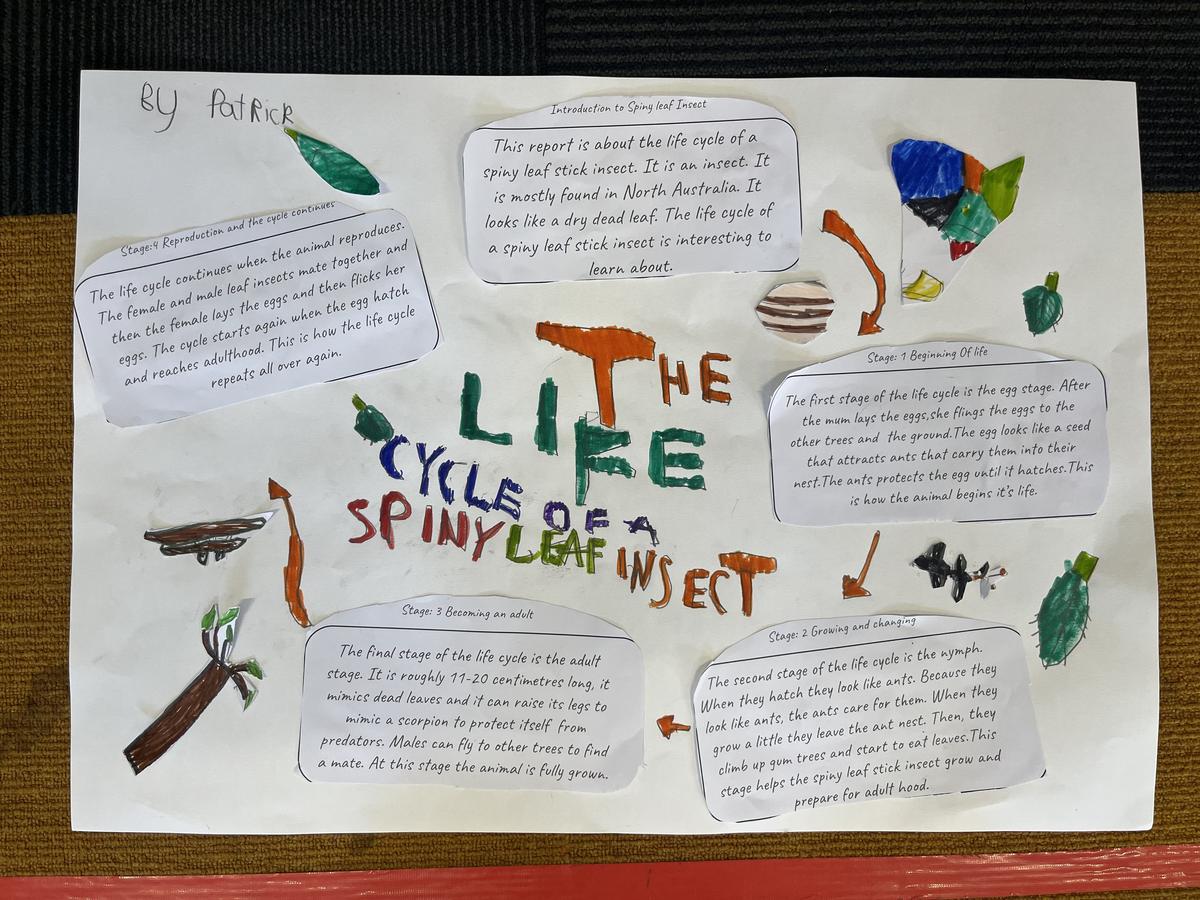 BY PatRick
Introduction to Spiny leaf Insect
This report is about the life cycle of a
spiny leaf stick insect. It is an insect. It
is mostly found in North Australia. It
looks like a dry dead leaf. The life cycle of
a spiny leaf stick insect is interesting to
learn about.
Stage:4 Reproduction and the cycle continues
The life cycle continues when the animal reproduces.
The female and male leaf insects mate together and
then the female lays the eggs and then flicks her
eggs. The cycle starts again when the egg hatch
and reaches adulthood. This is how the life cycle
repeats all over again.
THE
LIFE
CYCLE OF A
SPINY LEAF INSECT
Stage: 1 Beginning Of life
The first stage of the life cycle is the egg stage. After
the mum lays the eggs,she flings the eggs to the
other trees and the ground.The egg looks like a seed
that attracts ants that carry them into their
nest.The ants protects the egg until it hatches.This
is how the animal begins it's life.
Stage: 3 Becoming an adult
The final stage of the life cycle is the adult
stage. It is roughly 11-20 centimetres long, it
mimics dead leaves and it can raise its legs to
mimic a scorpion to protect itself from
predators. Males can fly to other trees to find
a mate. At this stage the animal is fully grown.
Stage: 2 Growing and changing
The second stage of the life cycle is the nymph.
When they hatch they look like ants. Because they
look like ants, the ants care for them. When they
grow a little they leave the ant nest. Then, they
climb up gum trees and start to eat leaves.This
stage helps the spiny leaf stick insect grow and
prepare for adult hood.